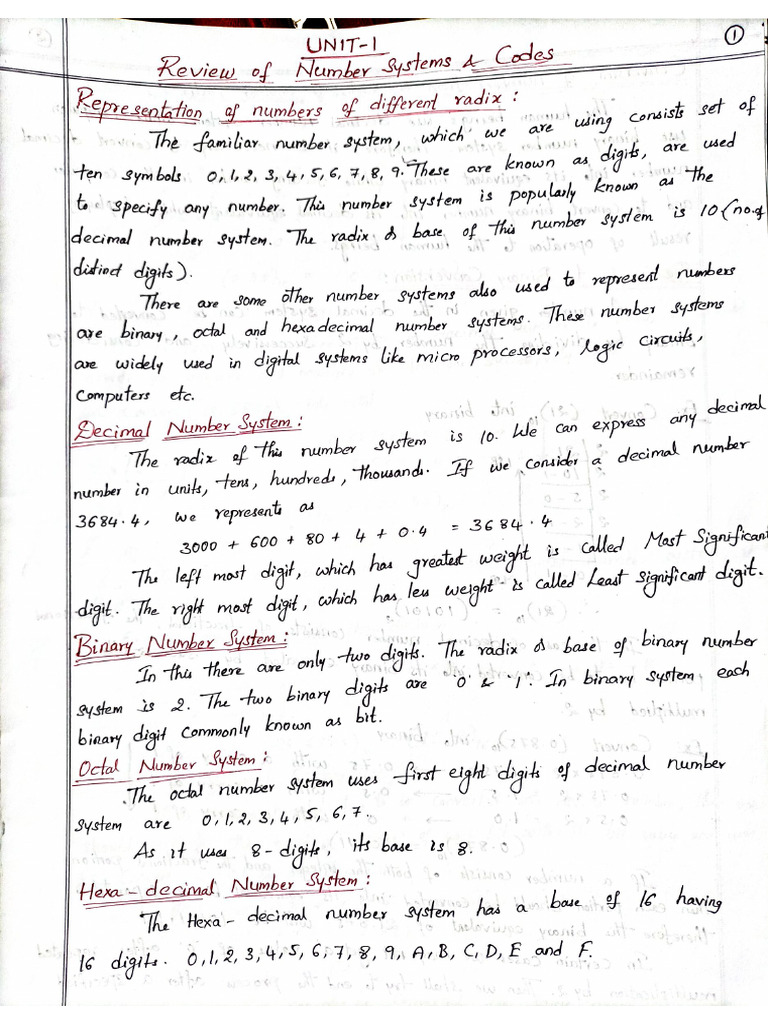 ①
UNIT-1
Review of Number Systems & Codes
Representation of numbers of different radix :
The familiar number system, which we are using consists set of
ten symbols 0,1,2,3,4,5,6,7,8,9. These are known as digits, are used
to specify any number. This number system is popularly known as the
decimal number system. The radix & base of this number system is 10 (no.of
distinct digits).
There are some other number systems also used to represent numbers
are binary, octal and hexadecimal number systems. These number systems
are widely used in digital systems like micro processors, logic circuits,
Computers etc.
Decimal Number System :
The radix of this number system is 10. We can express any decimal
number in units, tens, hundreds, thousands. If we consider a decimal number
3684.4, we represents as
3000 + 600 + 80 + 4 + 0.4 = 3684.4
The left most digit, which has greatest weight is called Most Significant
digit. The right most digit, which has less weight is called Least Significant digit.
Binary Number System :
In this there are only two digits. The radix & base of binary number
system is 2. The two binary digits are '0' & '1'. In binary system each
binary digit commonly known as bit.
Octal Number System :
The octal number system uses first eight digits of decimal number
system are 0,1,2,3,4,5,6,7.
As it uses 8-digits, its base is 8.
Hexa-decimal Number System :
The Hexa-decimal number system has a base of 16 having
16 digits. 0,1,2,3,4,5,6,7,8,9,A,B,C,D,E and F.